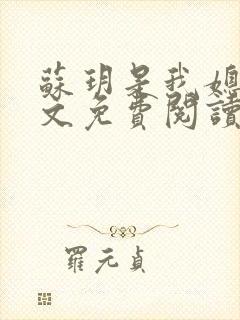 蘇玥是我媳
文免費閱讀
羅元貞